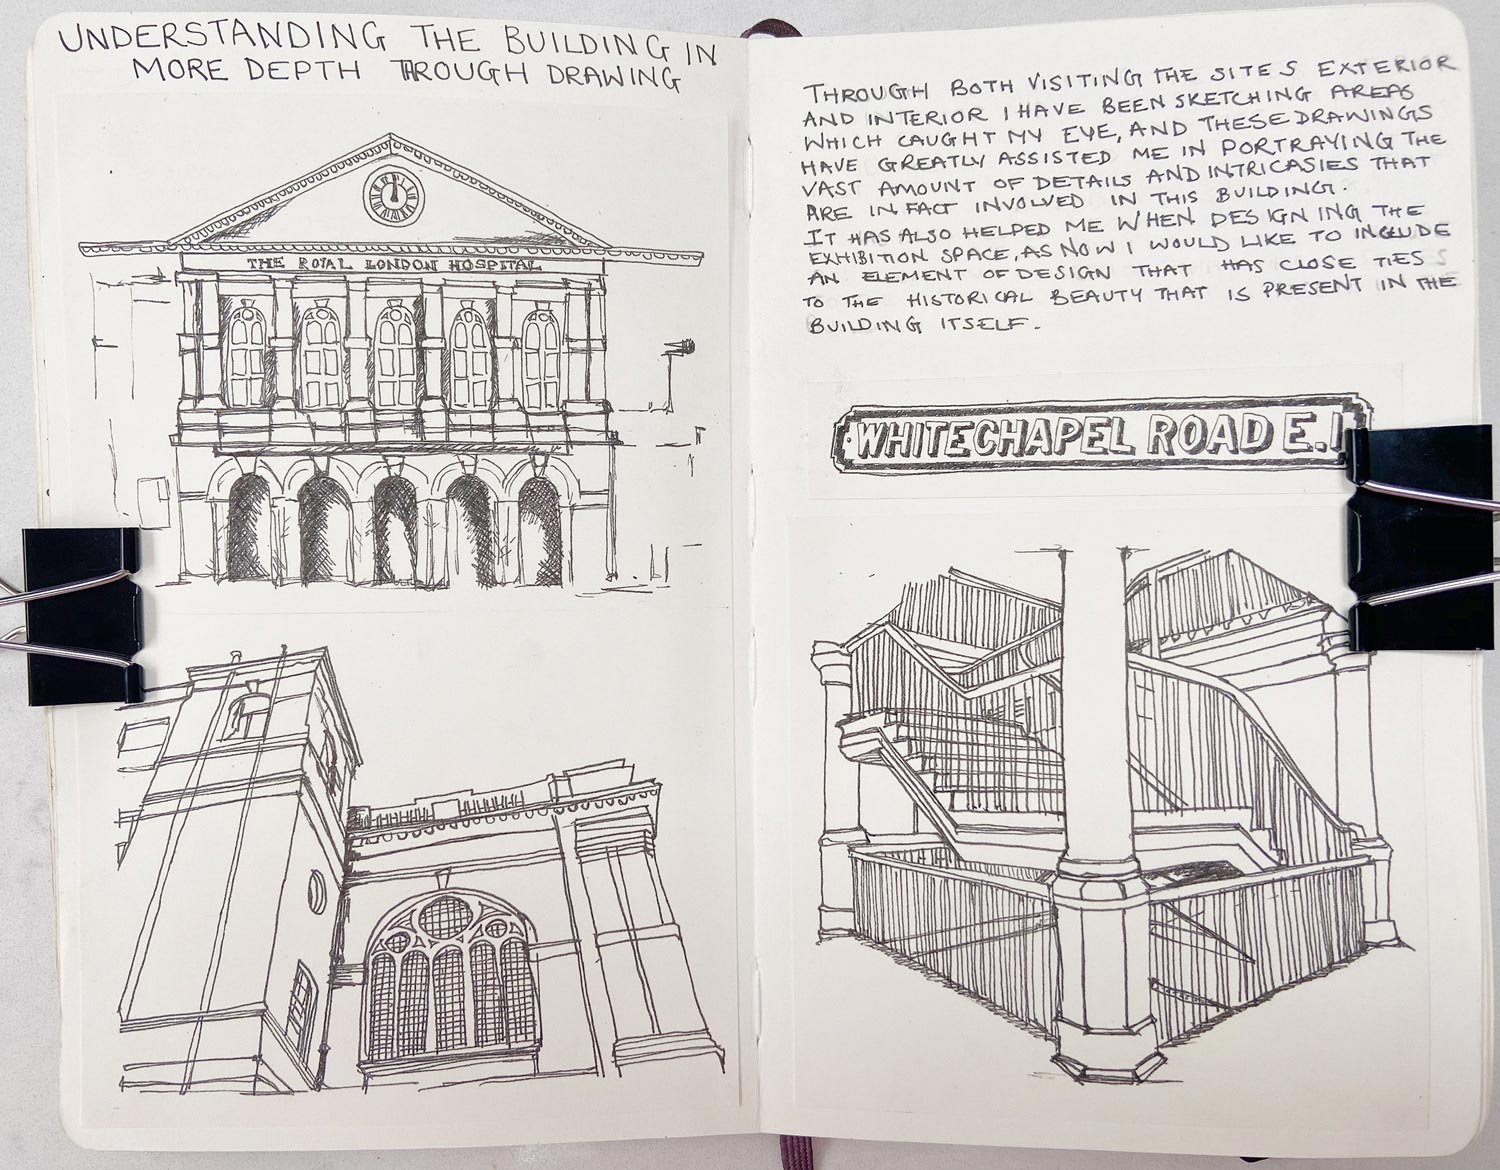 UNDERSTANDING THE BUILDING IN
MORE DEPTH THROUGH DRAWING
THE ROYAL LONDON HOSPITAL
THROUGH BOTH VISITING THE SITES EXTERIOR
AND INTERIOR I HAVE BEEN SKETCHING AREAS
WHICH CAUGHT MY EYE, AND THESE DRAWINGS
HAVE GREATLY ASSISTED ME IN PORTRAYING THE
VAST AMOUNT OF DETAILS AND INTRICASIES THAT
ARE IN FACT INVOLVED IN THIS BUILDING.
IT HAS ALSO HELPED ME WHEN DESIGNING THE
EXHIBITION SPACE, AS NOW I WOULD LIKE TO INCLUDE
AN ELEMENT OF DESIGN THAT HAS CLOSE TIES
TO THE HISTORICAL BEAUTY THAT IS PRESENT IN THE
BUILDING ITSELF.
WHITECHAPEL ROAD E.1